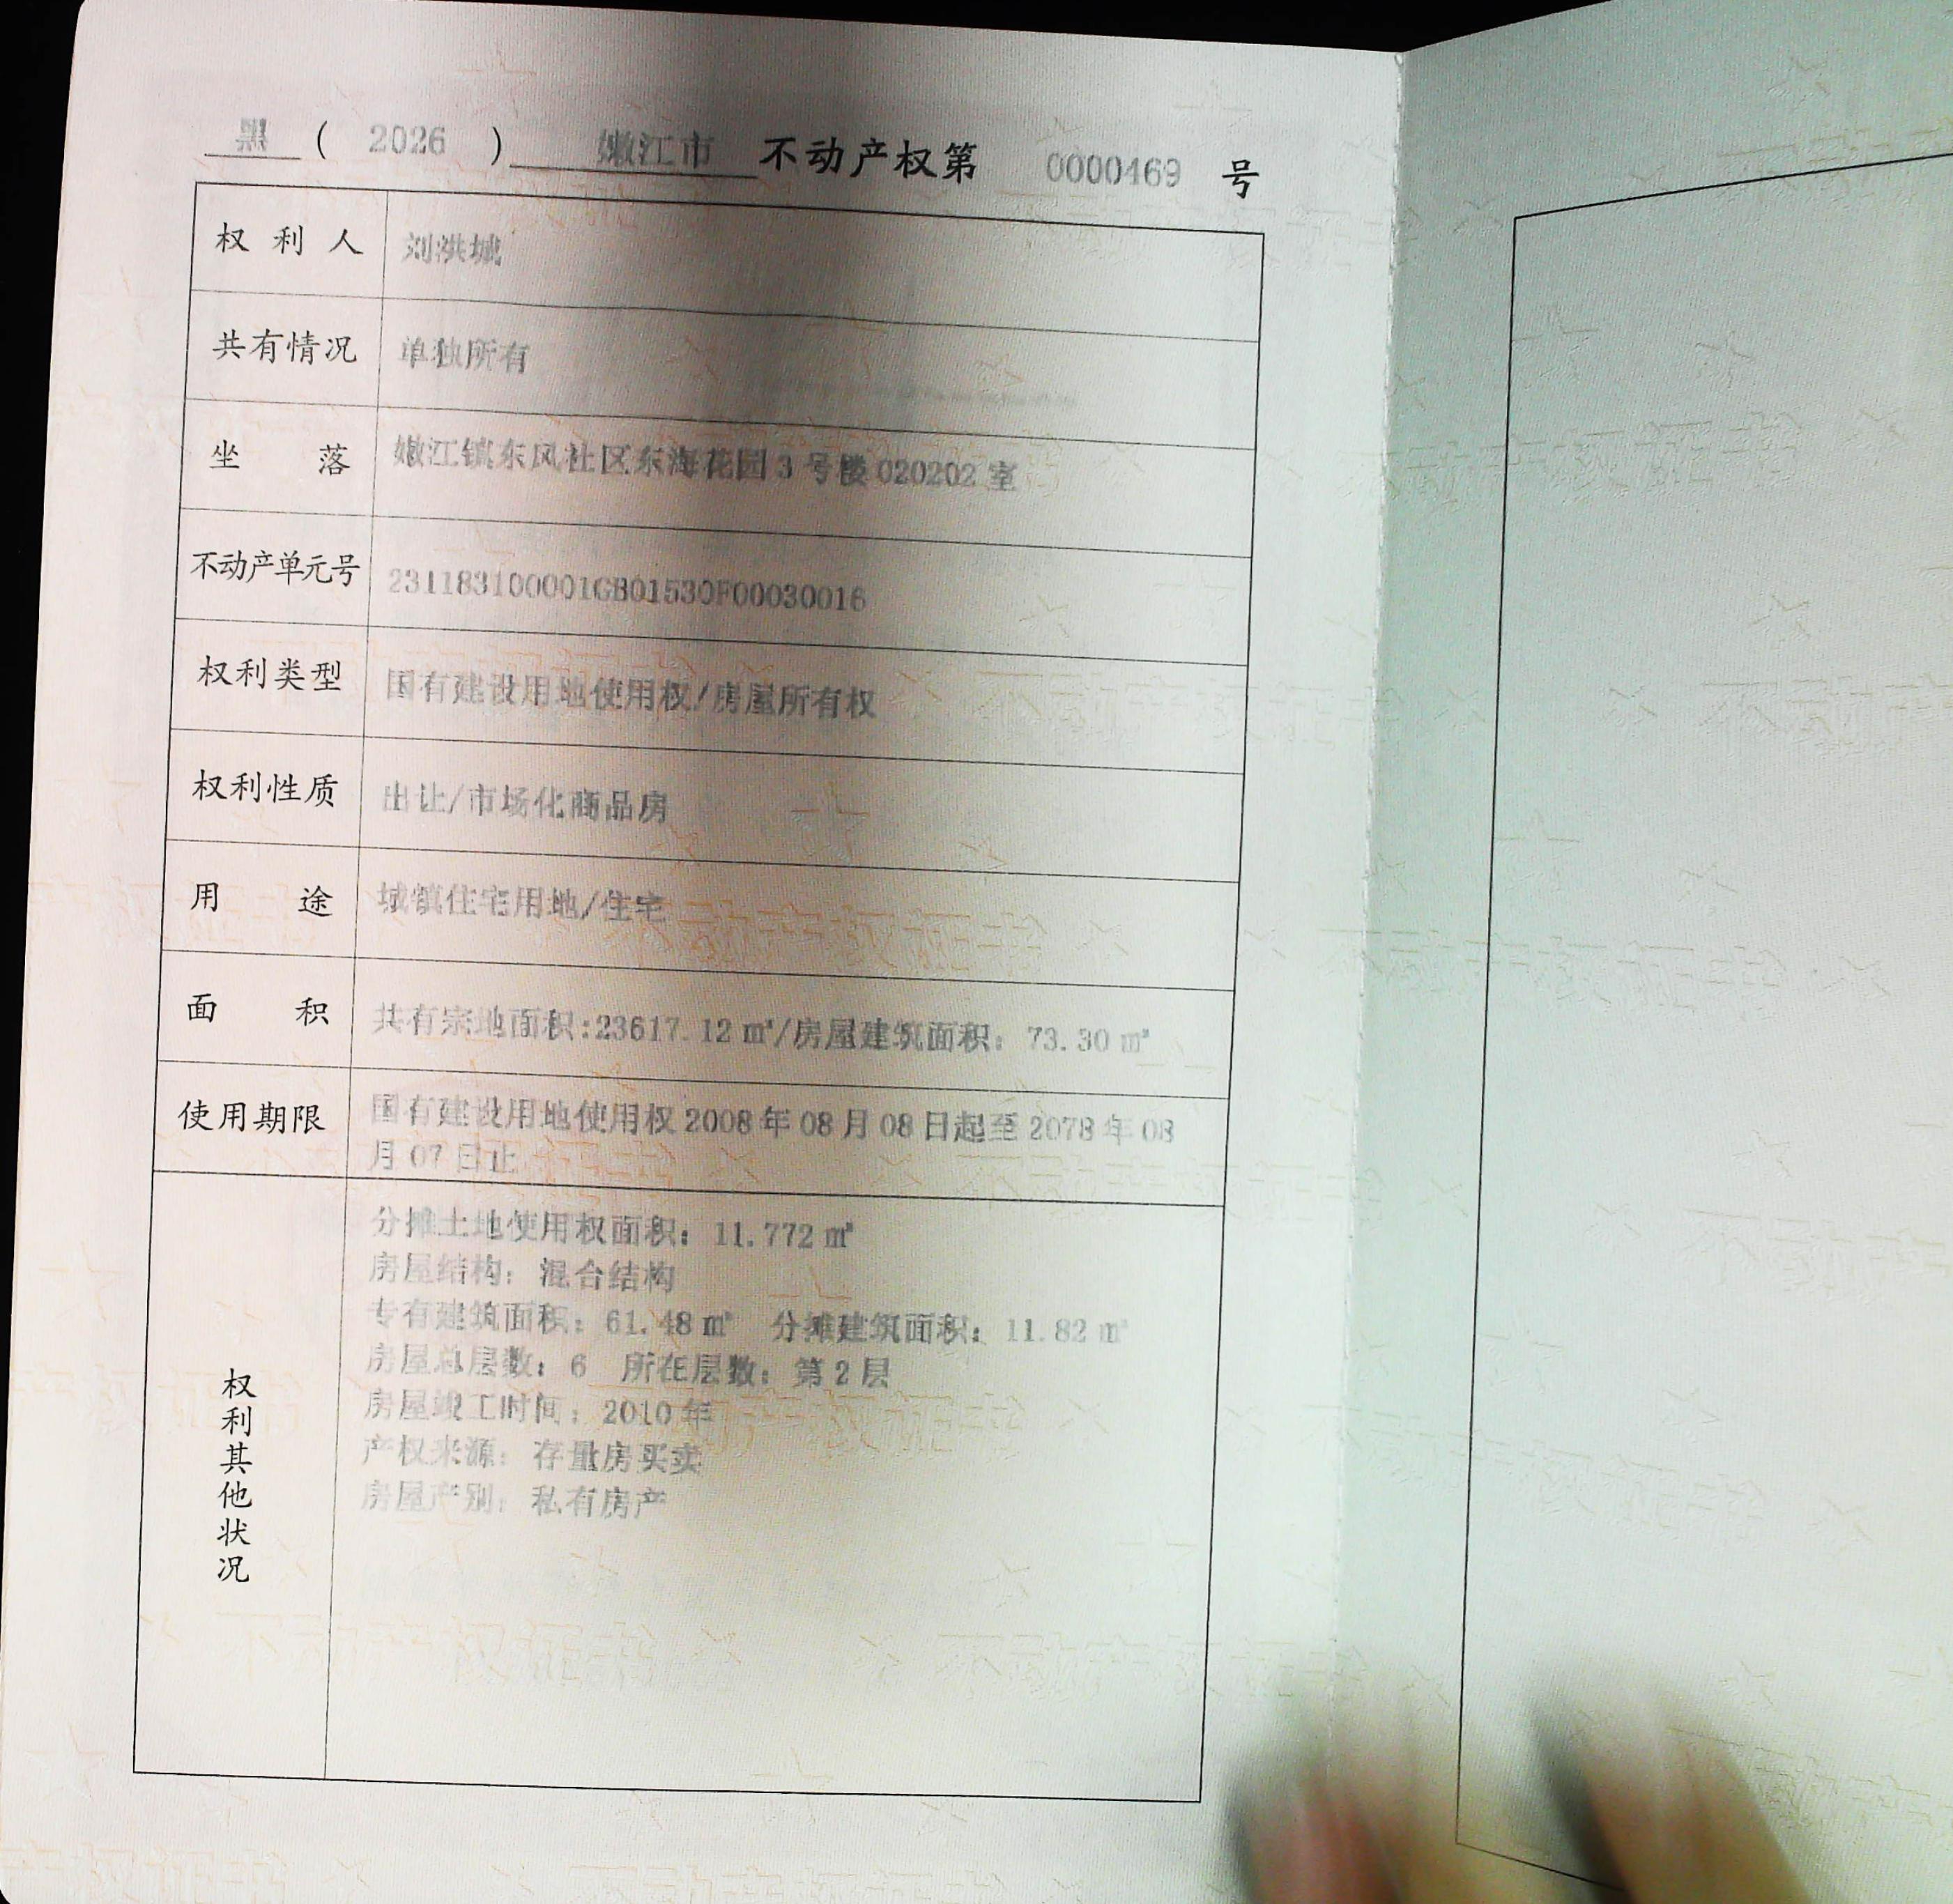 黑 ( 2026 ) 嫩江市 不动产权第 0000469 号
权利人 刘洪城
共有情况 单独所有
坐落 嫩江镇东风社区东海花园3号楼020202室
不动产单元号 231183100001GB01530F00030016
权利类型 国有建设用地使用权/房屋所有权
权利性质 出让/市场化商品房
用途 城镇住宅用地/住宅
面积 共有宗地面积:23617.12㎡/房屋建筑面积：73.30㎡
使用期限 国有建设用地使用权2008年08月08日起至2078年08
月07日止
权利其他状况
分摊土地使用权面积：11.772㎡
房屋结构：混合结构
专有建筑面积：61.48㎡ 分摊建筑面积：11.82㎡
房屋总层数：6 所在层数：第2层
房屋竣工时间：2010年
产权来源：存量房买卖
房屋产别：私有房产